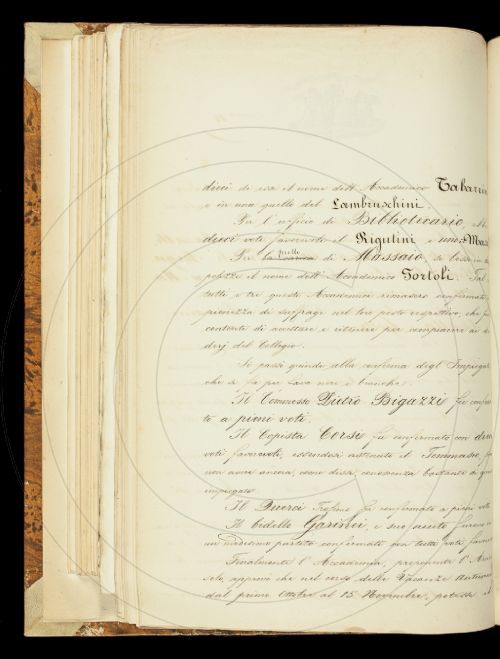 dieci di essi il nome dell' Accademico Tabarrin
e in una quello del Lambruschini.
Per l' uficio di Bibliotecario,
dieci voti favorevoli il Rigutini e uno Maz
Per quello di Massaio, le
il nome dell' Accademico Tortoli.
tutti e tre questi Accademici rimasero confermati
pienezza di suffragi nel loro posto respettivo, che
contenti di accettare e ritenere per compiacere ai de
derj del Collegio.
Si passò quindi alla conferma degl' Impiegati
che si fa per fave nere e bianche.
Il Commesso Pietro Bigazzi fu conferma
to a pieni voti.
Il Copista Corsi fu confermato con dieci
voti favorevoli, essendosi astenuto il Tommaseo, per
non avere ancora, come disse, conoscenza bastante di que
impiegato.
Il Querci fu confermato a pieni voti
Il bidello Garinei, e suo aiuto furono
un medesimo partito confermati con tutti voti favore
Finalmente l' Accademia, proponente l' Arci
solo, approvò che nel corso delle Vacanze Autunn
dal primo Ottobre al 15 Novembre, potesse